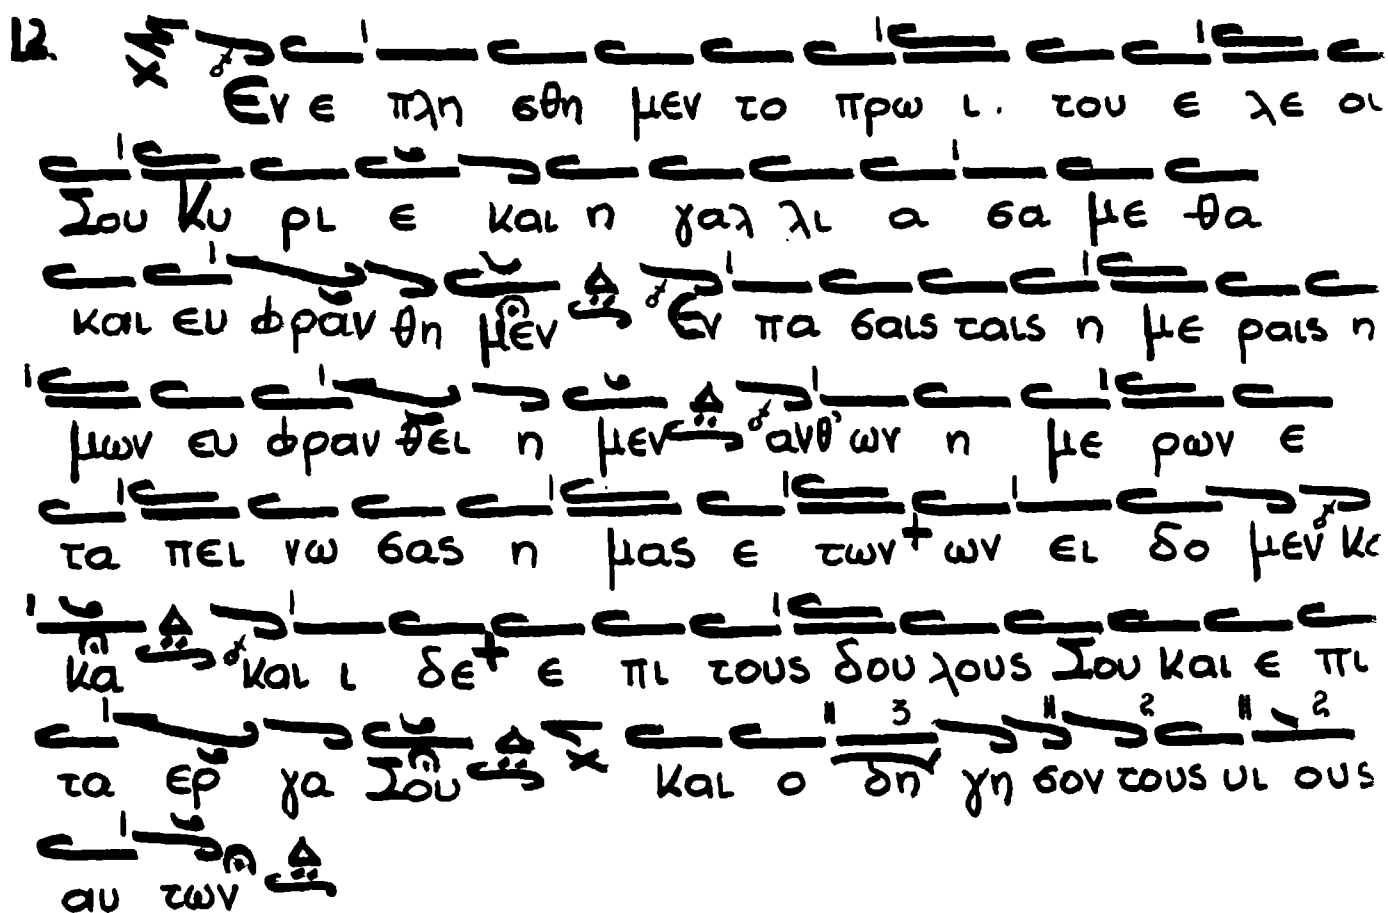 12. Εν ε πλη σθη μεν το πρω ι. του ε λε οι
Σου Κυ ρι ε και η γαλ λι α σα με θα
και ευ φραν θη μεν Εν πα σαις ταις η με ραις η
μων ευ φραν θει η μεν ανθ' ων η με ρων ε
τα πει νω σας η μας ε των + ων ει δο μεν κα
κα και ι δε + ε πι τους δου λους Σου και ε πι
τα ερ γα Σου και ο δη γη σον τους υι ους
αυ των